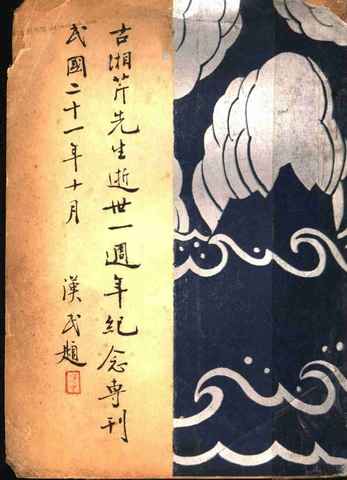 古湘芹先生逝世一週年紀念專刊
民國二十一年十月 漢民題